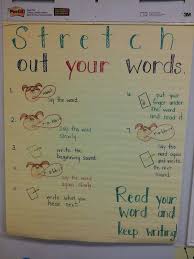 Post-it
Stretch
out your words.
1. Say the word.
2. Say the word
slowly.
3. write the
beginning sound.
4. Say the word
again slowly.
5. write what you
hear next.
6. put your
finger under
the word
and read it.
7. Say the
word again
and write
Read your
word and
keep writing